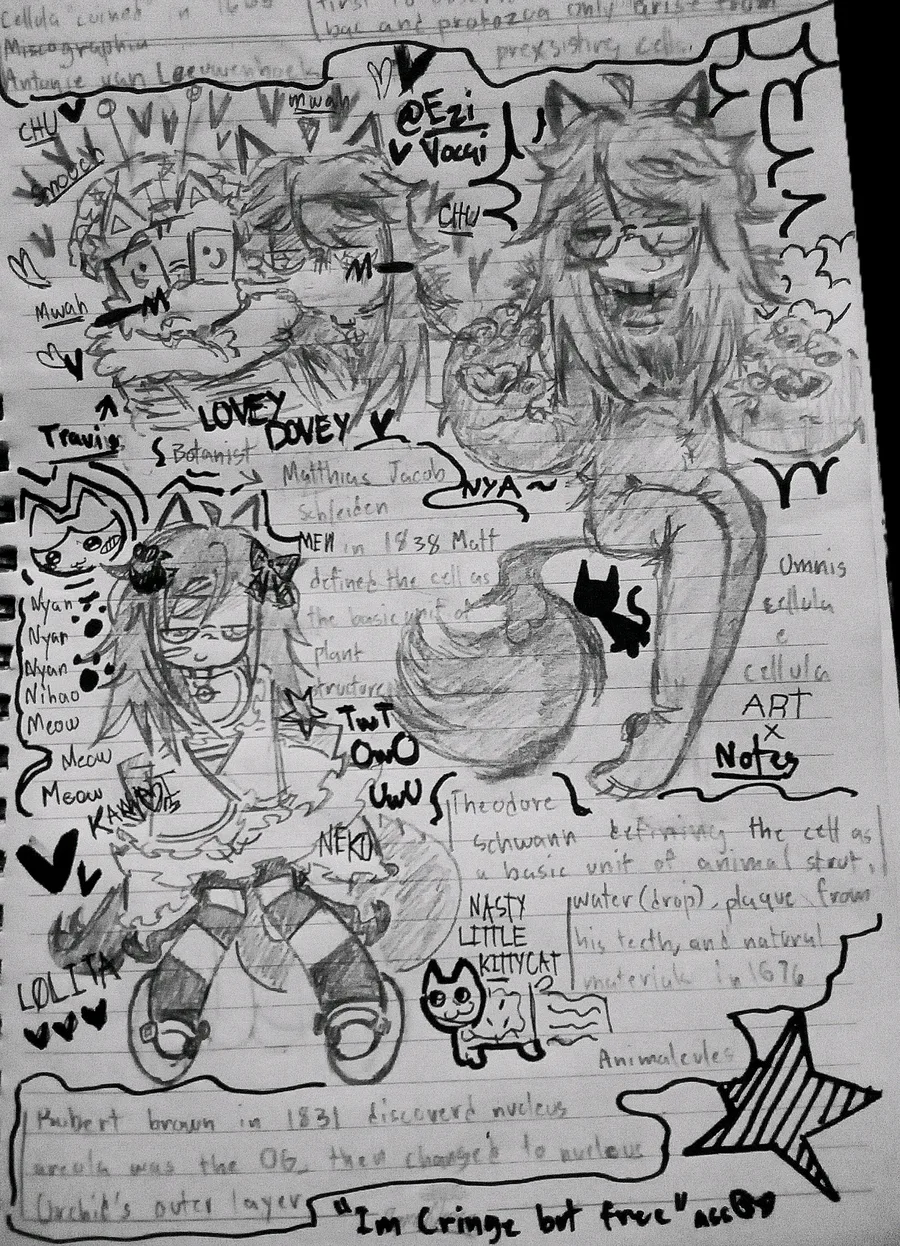 Cellula "coined" in 1665
Miscographia
Antonie van Leeuwenhoek
first to observe
bac and protozoa only arise from
prexsisting cells.
CHU
Smooch
mwah
@Ezi
Vocci
CHU
Mwah
Travis
LOVEY
DOVEY
Botanist
Matthias Jacob
Schleiden
NYA ~
MEW
in 1838 Matt
defined the cell as
the basic unit of
plant
structure
Nyan
Nyan
Nyan
Nihao
Meow
Meow
Meow
Omnis
cellula
e
cellula
ART
x
Notes
TwT
OwO
UwU
NEKO
LOLITA
Theodore
schwann defining the cell as
a basic unit of animal strut.
NASTY
LITTLE
KITTYCAT
water (drop), plaque from
his teeth, and natural
materials in 1676
Animalcules
Robert brown in 1831 discoverd nucleus
areola was the OG, then changed to nucleus
Orchid's outer layer
"Im Cringe but free" ass